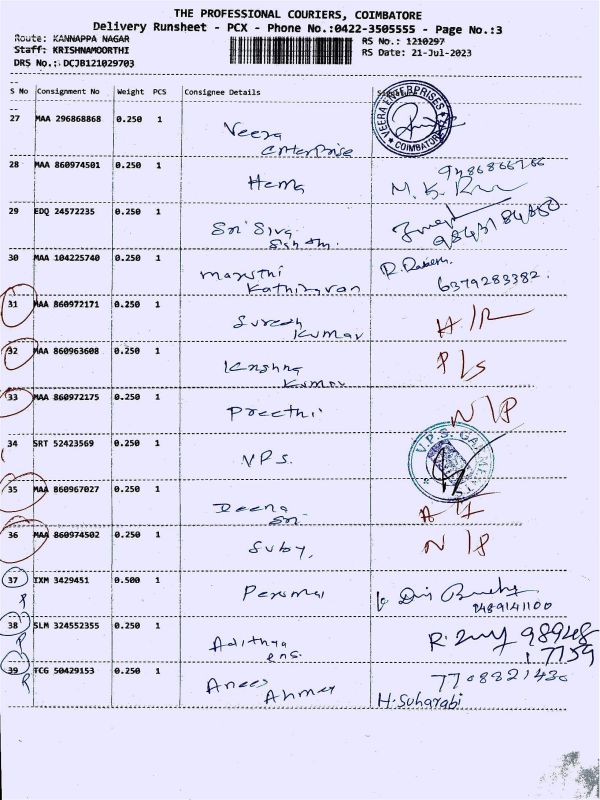 THE PROFESSIONAL COURIERS, COIMBATORE
Delivery Runsheet - PCX - Phone No.:0422-3505555 - Page No.:3
Route: KANNAPPA NAGAR RS No.: 1210297
Staff: KRISHNAMOORTHI RS Date: 21-Jul-2023
DRS No.: DCJB121029703
S No Consignment No Weight PCS Consignee Details
27 MAA 296868868 0.250 1 Veera
enterprise
VEERA ENTERPRISES
COIMBATORE
28 MAA 860974501 0.250 1 Hema
29 EDQ 24572235 0.250 1 Sri Siva
30 MAA 104225740 0.250 1
Kathiravan 6379283382.
31 MAA 860972171 0.250 1 Suresh
Kumar
32 MAA 860963608 0.250 1 Krishna P/s
Kumar
33 MAA 860972175 0.250 1 Preethi N/P
34 SRT 52423569 0.250 1 VPS.
V.P.S. GARMENTS
35 MAA 860967027 0.250 1 Deena
Sri
36 MAA 860974502 0.250 1 Suby, N/P
37 IXM 3429451 0.500 1 Perumal
P 9489141100
38 SLM 324552355 0.250 1 Adithya
P ens.
39 TCG 50429153 0.250 1 Anees 7708321430
P Ahmed H. Suharabi